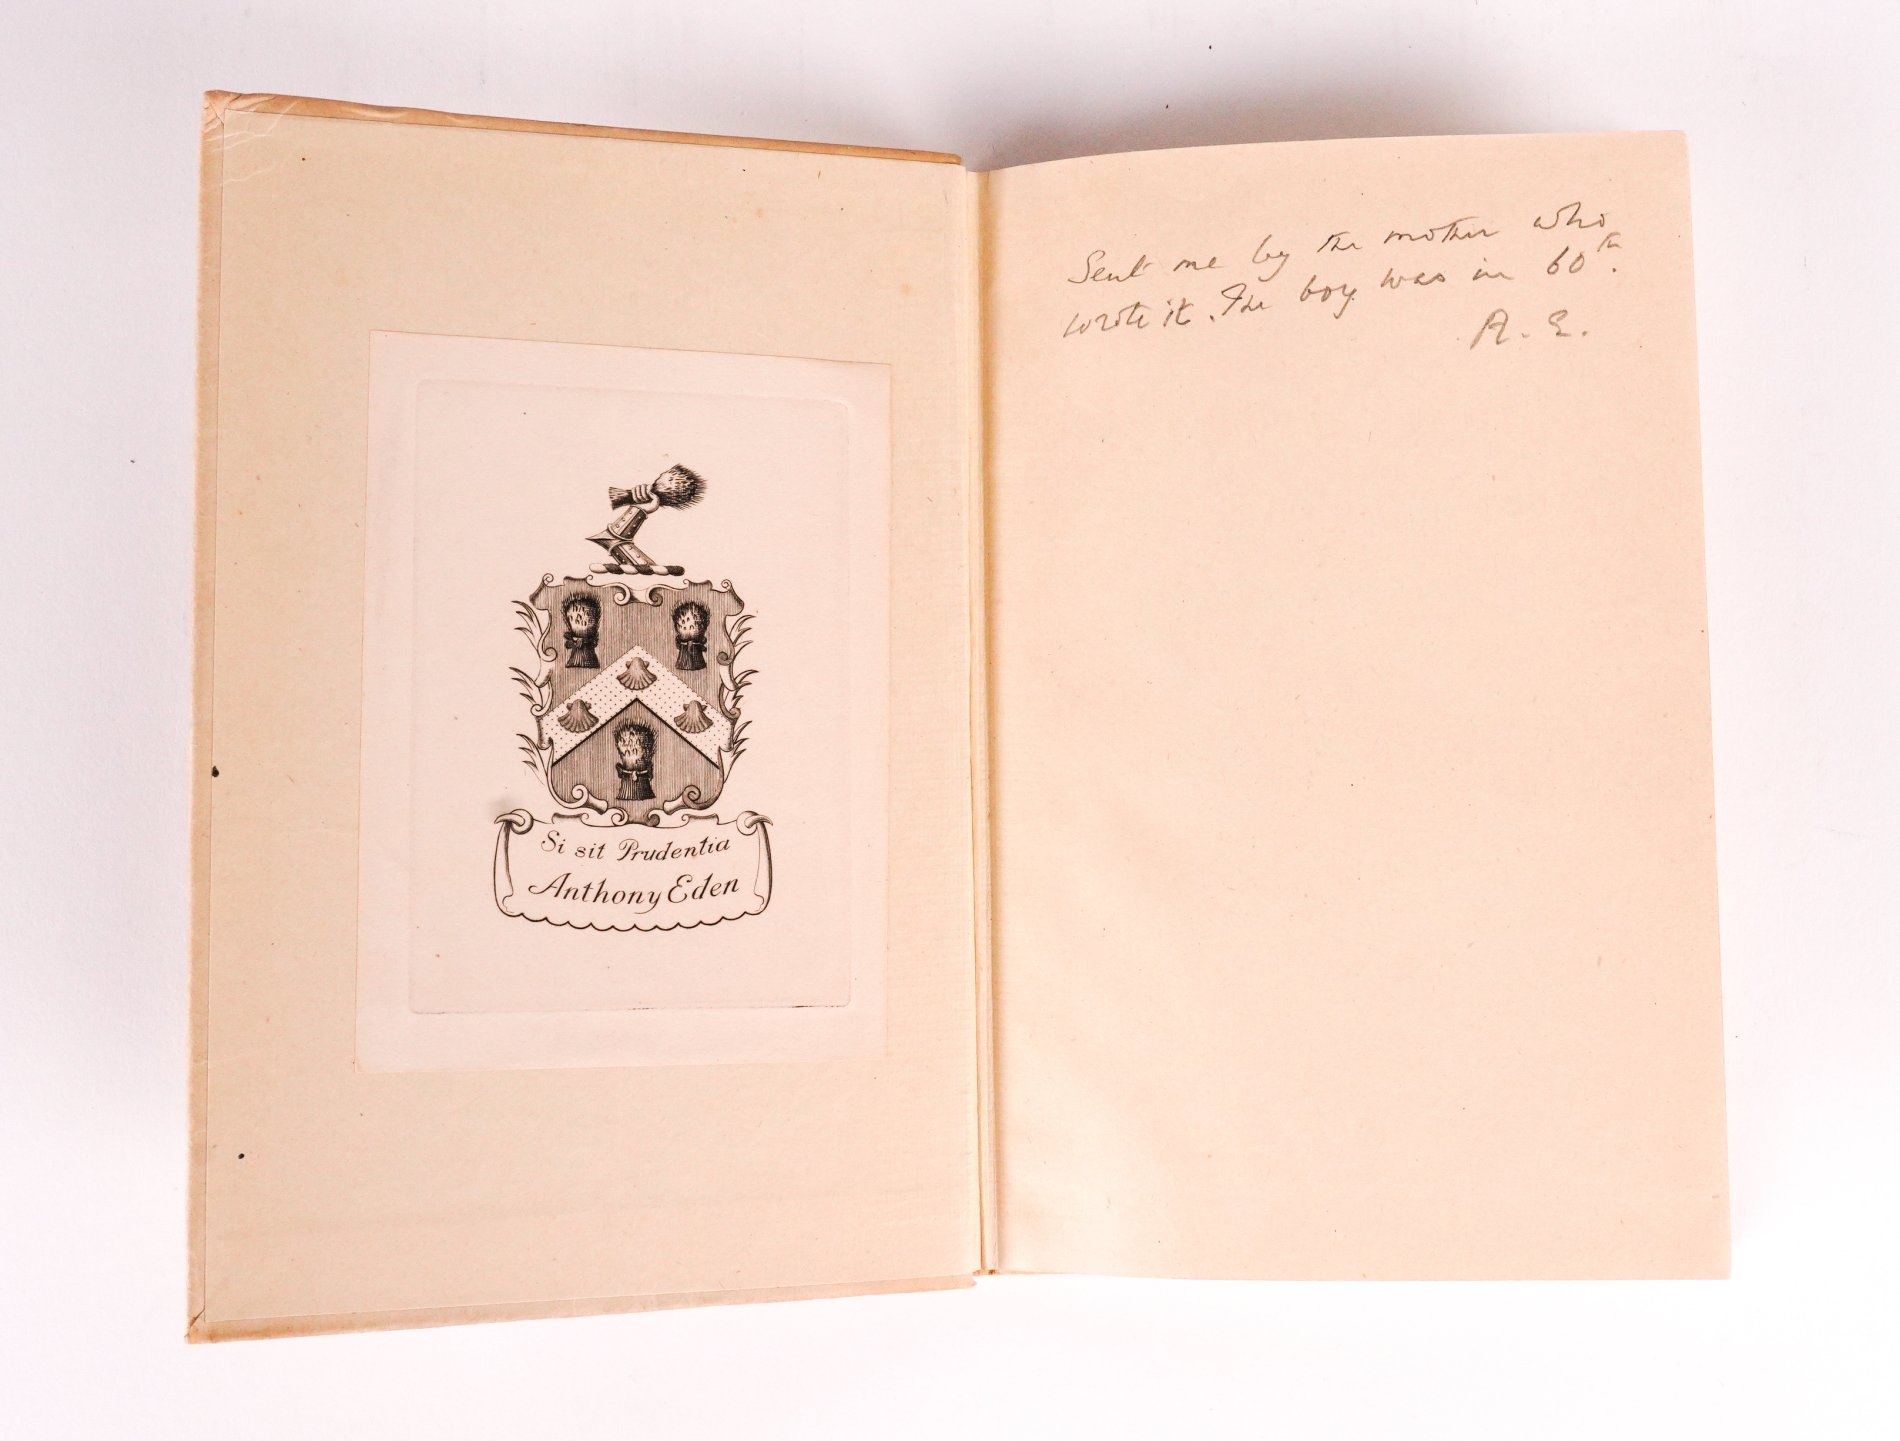 Si sit Prudentia
Anthony Eden
Sent me by the mother who
wrote it. The boy was in 60th.
A. E.